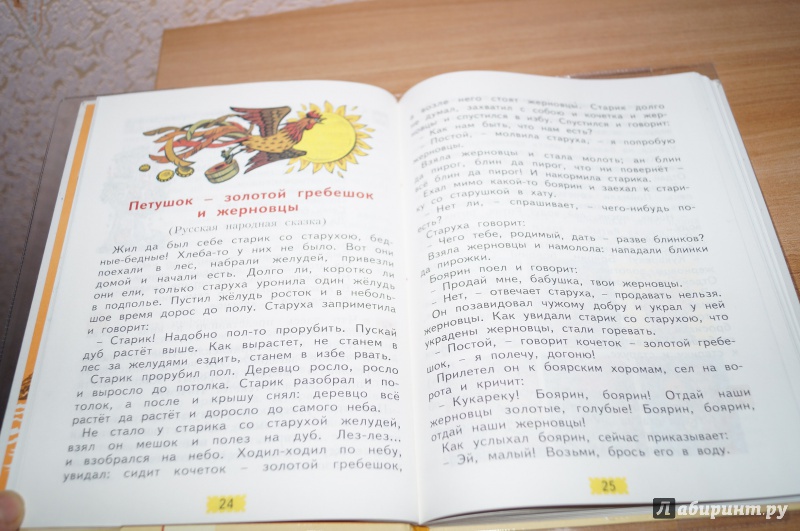 Петушок – золотой гребешок
и жерновцы
(Русская народная сказка)
Жил да был себе старик со старухою, бед-
ные-бедные! Хлеба-то у них не было. Вот они
поехали в лес, набрали желудей, привезли
домой и начали есть. Долго ли, коротко ли
они ели, только старуха уронила один жёлудь
в подполье. Пустил жёлудь росток и в неболь-
шое время дорос до полу. Старуха заприметила
и говорит:
– Старик! Надобно пол-то прорубить. Пускай
дуб растёт выше. Как вырастет, не станем в
лес за желудями ездить, станем в избе рвать.
Старик прорубил пол. Деревцо росло, росло
и выросло до потолка. Старик разобрал и по-
толок, а после и крышу снял: деревцо всё
растёт да растёт и доросло до самого неба.
Не стало у старика со старухой желудей,
взял он мешок и полез на дуб. Лез-лез...
и взобрался на небо. Ходил-ходил по небу,
увидал: сидит кочеток – золотой гребешок,
24
возле него стоят жерновцы. Старик долго
думал, захватил с собою и кочетка и жер-
новцы и спустился в избу. Спустился и говорит:
– Как нам быть, что нам есть?
– Постой, – молвила старуха, – я попробую
жерновцы.
Взяла жерновцы и стала молоть: ан блин
да пирог, блин да пирог, что ни повернёт –
всё блин да пирог! И накормила старика.
Ехал мимо какой-то боярин и заехал к стари-
ку со старушкой в хату.
– Нет ли, – спрашивает, – чего-нибудь по-
есть?
Старуха говорит:
– Чего тебе, родимый, дать – разве блинков?
Взяла жерновцы и намолола: нападали блинки
да пирожки.
Боярин поел и говорит:
– Продай мне, бабушка, твои жерновцы.
– Нет, – отвечает старуха, – продавать нельзя.
Он позавидовал чужому добру и украл у ней
жерновцы. Как увидали старик со старухою, что
украдены жерновцы, стали горевать.
– Постой, – говорит кочеток – золотой гребе-
шок, – я полечу, догоню!
Прилетел он к боярским хоромам, сел на во-
рота и кричит:
– Кукареку! Боярин, боярин! Отдай наши
жерновцы золотые, голубые! Боярин, боярин,
отдай наши жерновцы!
Как услыхал боярин, сейчас приказывает:
– Эй, малый! Возьми, брось его в воду.
25
Лабиринт.ру